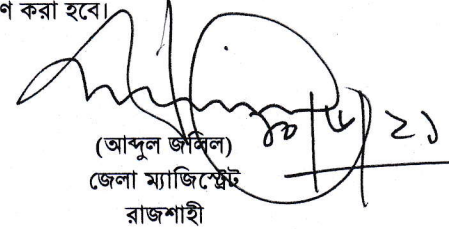 ণ করা হবে।
(আব্দুল জলিল)
জেলা ম্যাজিস্ট্রেট
রাজশাহী